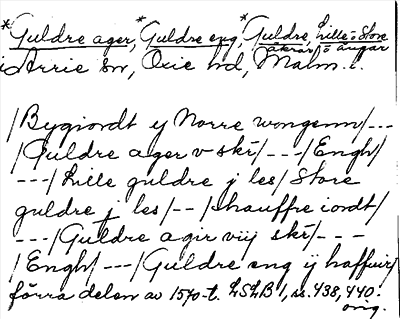 *Guldre ager, *Guldre eng, *Guldre, Lille o Store
åkrar o ängar
i Arrie sn, Oxie hd, Malm. l.
/Bygiordt ij Norre wongenn/---
/Guldre ager v skr/---/Engh/
---/Lille guldre j les/Store
guldre j les/--/hauffre iordt/
---/Guldre agir viij skr/---
/Engh/---/Guldre eng ij haffuir/
förra delen av 1570-t. LSLB 1, ss. 438, 440.
orig.